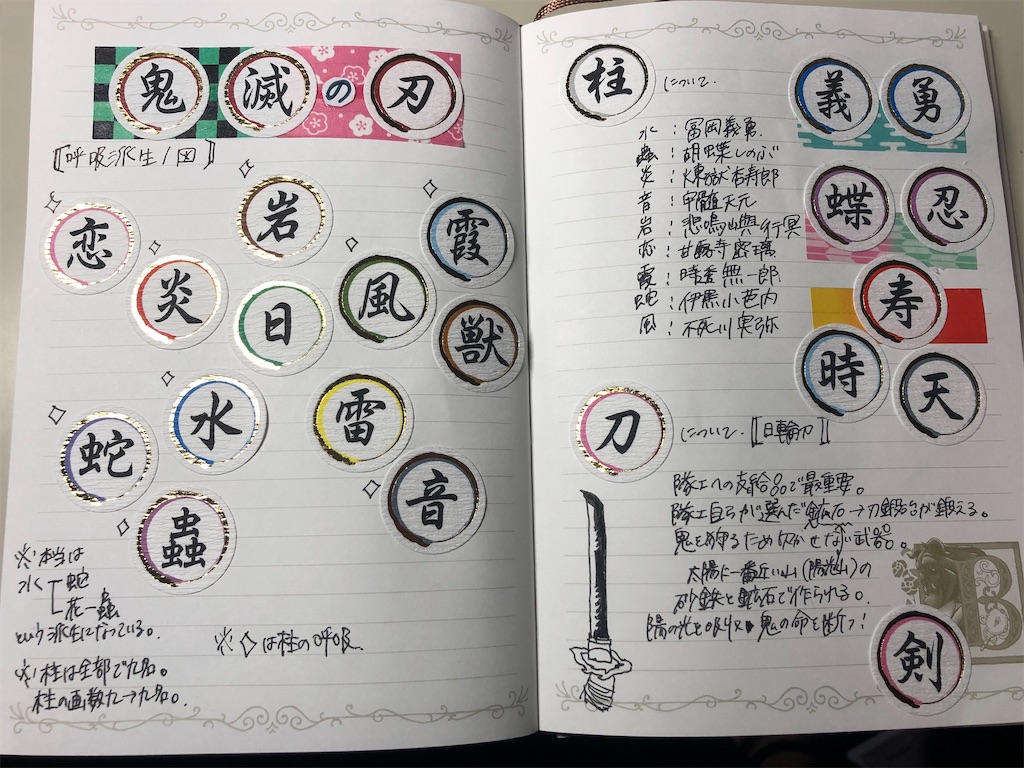 鬼滅の刃
〚呼吸派生ノ図〛
恋
岩
霞
炎
日
風
獣
水
雷
蛇
音
蟲
※本当は
水 蛇
花ー蟲
という派生になっている。
※柱は全部で九名。
柱の画数九→九名。
※◇は柱の呼吸
柱について.
水：冨岡義勇
蟲：胡蝶しのぶ
炎：煉獄杏寿郎
音：宇髄天元
岩：悲鳴嶼行冥
恋：甘露寺蜜璃
霞：時透無一郎
蛇：伊黒小芭内
風：不死川実弥
義勇
蝶忍
寿
時天
刀について.〚日輪刀〛
隊士への支給品で最重要。
隊士自らが選んだ鉱石→刀鍛冶が鍛える。
鬼を狩るため欠かせない武器。
太陽に一番近い山(陽光山)の
砂鉄と鉱石で作られる。
陽の光を吸収、鬼の命を断つ!
B
剣